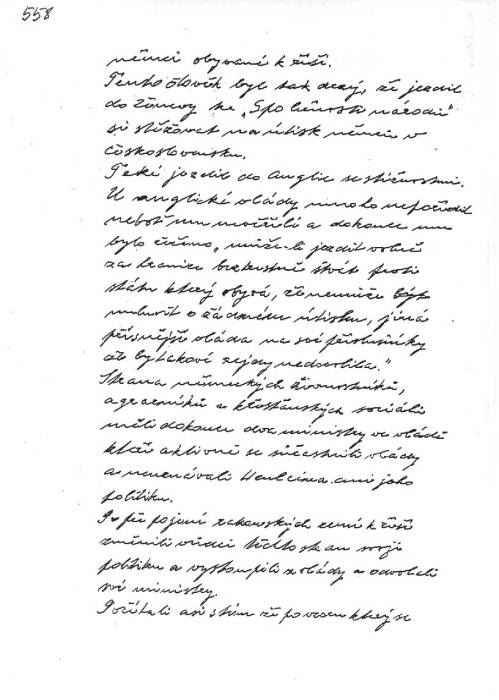 558
němci obývané k říši.
Tento člověk byl tak drzý, že jezdil
do Ženevy ke „Společnosti národů"
si stěžovat na útisk němců v
Československu.
Také jezdil do Anglie se stížnostmi.
U anglické vlády mnoho nepořídil
neboť mu nevěřili a dokonce mu
bylo řečeno „může-li jezdit volně
za hranice beztrestně štvát proti
státu který obývá, že nemůže být
mluvit o žádném útisku, jiná
přísnější vláda na své příslušníky
by takové rejdy nedovolila."
Strana německých živnostníků,
agrárníků a křesťanských sociálů
měli dokonce dva ministry ve vládě
kteří aktivně se súčastnili vlády
a neuznávali Henleina ani jeho
politiku.
Po připojení rakouských zemí k říši
změnili vůdci těchto stran svoji
politiku a vystoupili z vlády a odvolali
své ministry.
Počítali asi s tím že po vzoru který se